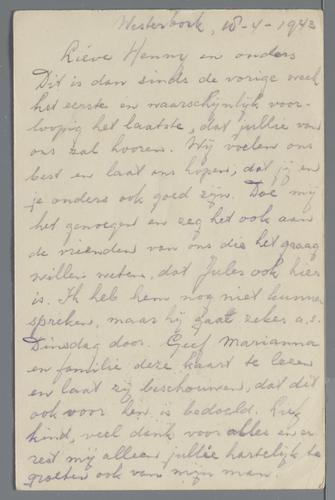 Westerbork, 18-4-1943
Lieve Henny en ouders
Dit is dan sinds de vorige week
het eerste en waarschijnlijk voor-
loopig het laatste, dat jullie van
ons zal hooren. Wij voelen ons
best en laat ons hopen, dat jij en
je ouders ook goed zijn. Doe mij
het genoegen en zeg het ook aan
de vrienden van ons die het graag
willen weten, dat Jules ook hier
is. Ik heb hem nog niet kunnen
spreken, maar hij gaat zeker a.s.
Dinsdag door. Geef Marianna
en familie deze kaart te lezen
en laat zij beschouwen, dat dit
ook voor hen is bedoeld. Lief
kind, veel dank voor alles en er
rest mij alleen jullie hartelijk te
groeten ook van mijn man.